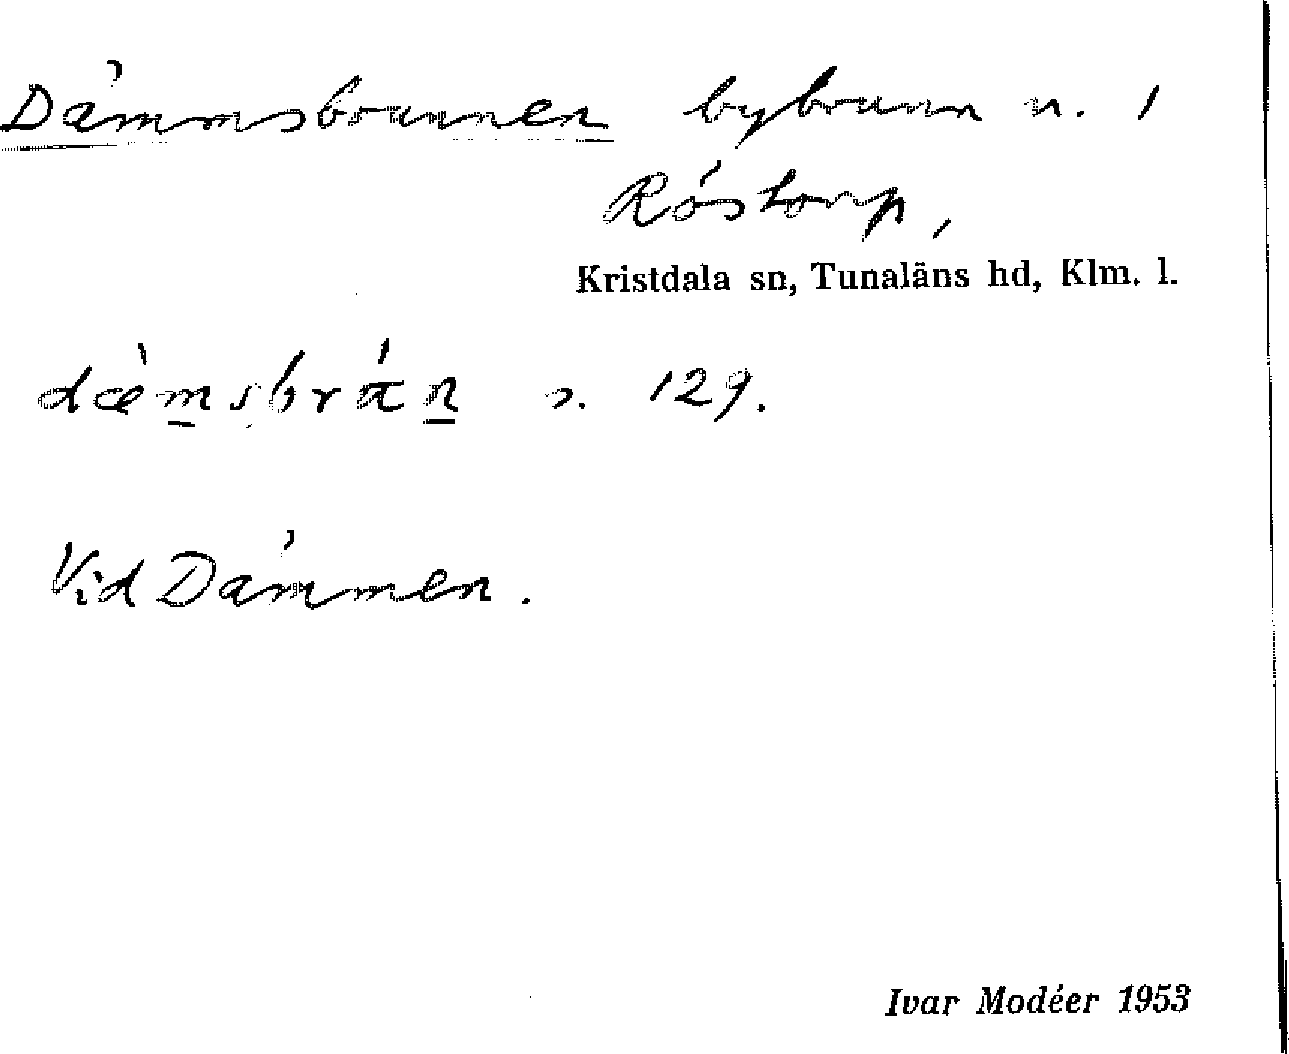 Dämmsbrunnen bybrunn n. 1
Röstorp,
Kristdala sn, Tunaläns hd, Klm. l.
s. 129.
Vid Dämmen.
Ivar Modéer 1953